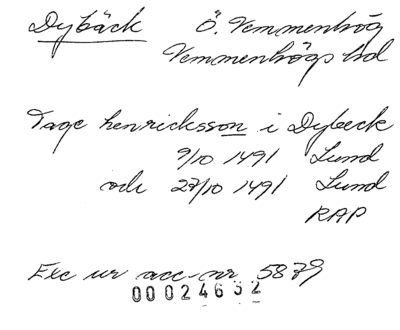 Dybäck Ö. Vemmenhög
Vemmenhögs hd
Tage henricksson i Dybeck
9/10 1491 Lund
och 27/10 1491 Lund
RAP
Exc ur acc-nr 5879
00024632